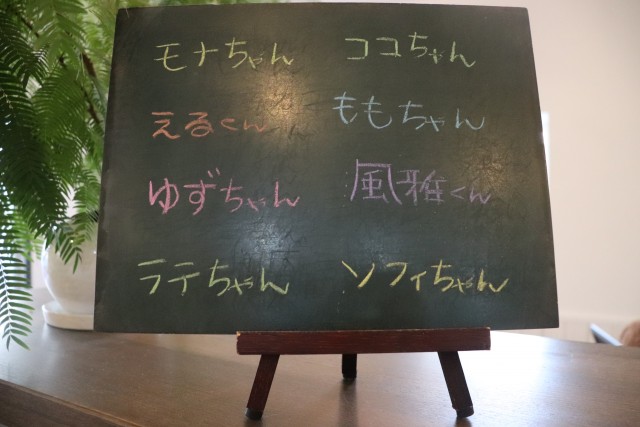 モナちゃん ココちゃん
えるくん ももちゃん
ゆずちゃん 風雅くん
ラテちゃん ソフィちゃん